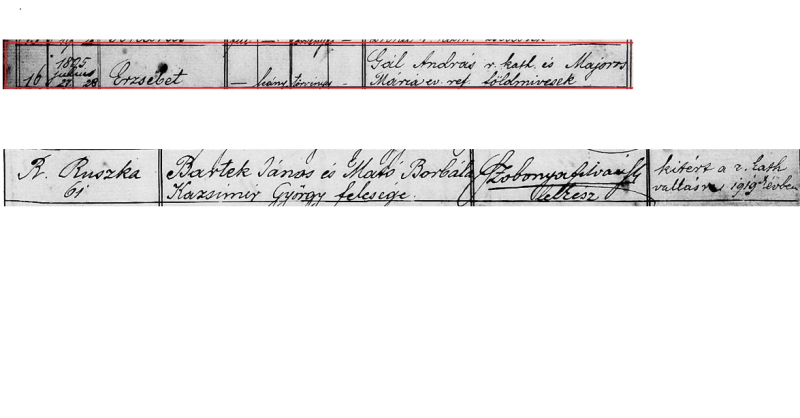 1895
16 julius Erzsébet — leány törvényes — Gál András r. kath. és Majoros
27 28 Mária ev. ref. földmivesek
R. Ruszka Bartek János és Mató Borbála kitért a r. kath
61 Kazsimér György felesége. lelkész vallásra 1919 évben